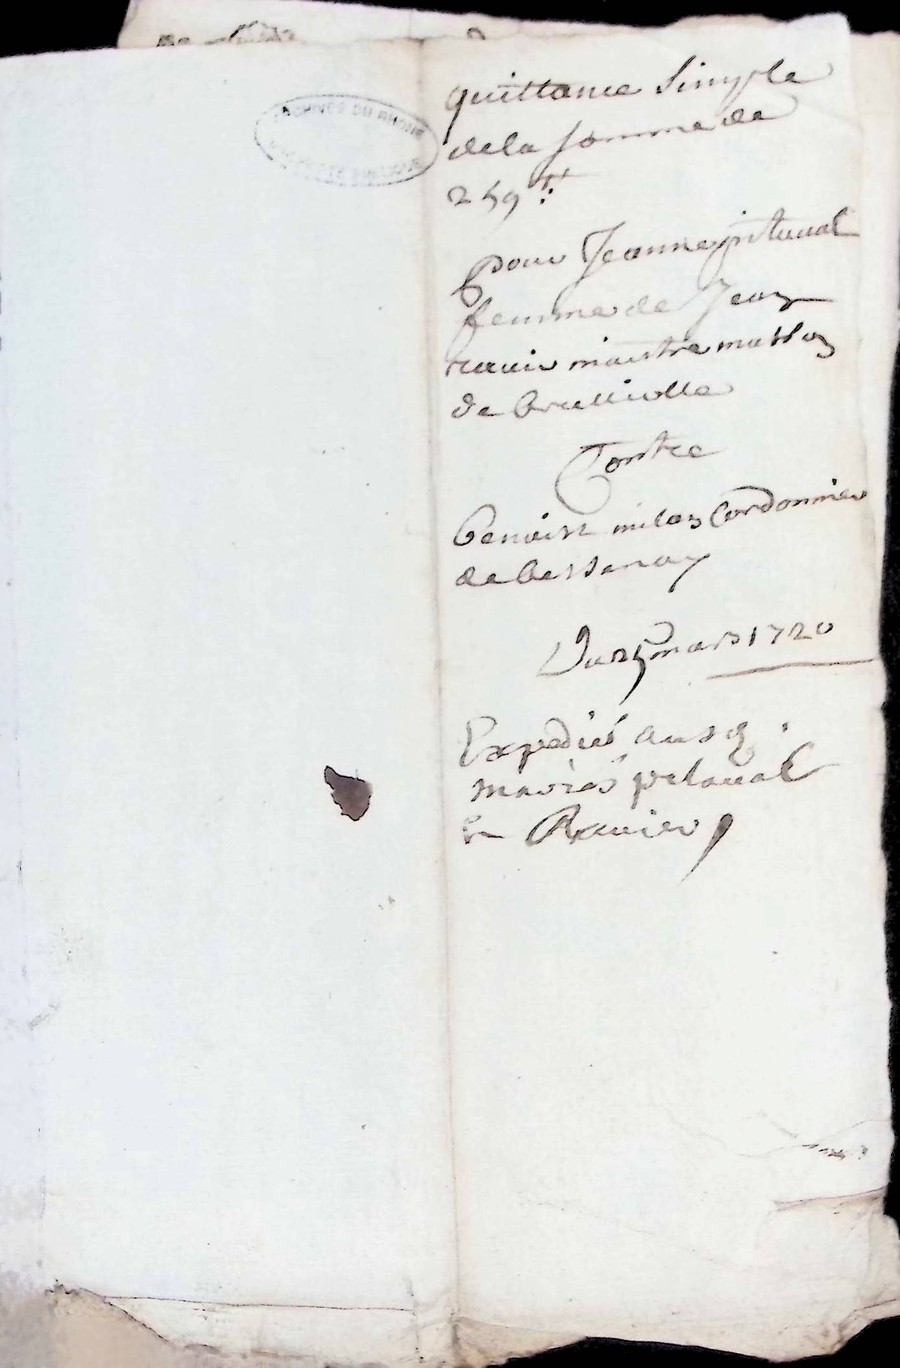 ARCHIVES DU RHONE
quittance simple
de la somme de
259 tt
pour Jeanne pitaval
femme de Jean
maistre masson
de brulliolle
Contre
benoist milan Cordonnier
de bessenay
Du 25 mars 1720
Expedié ausd
mariés pitaval
et